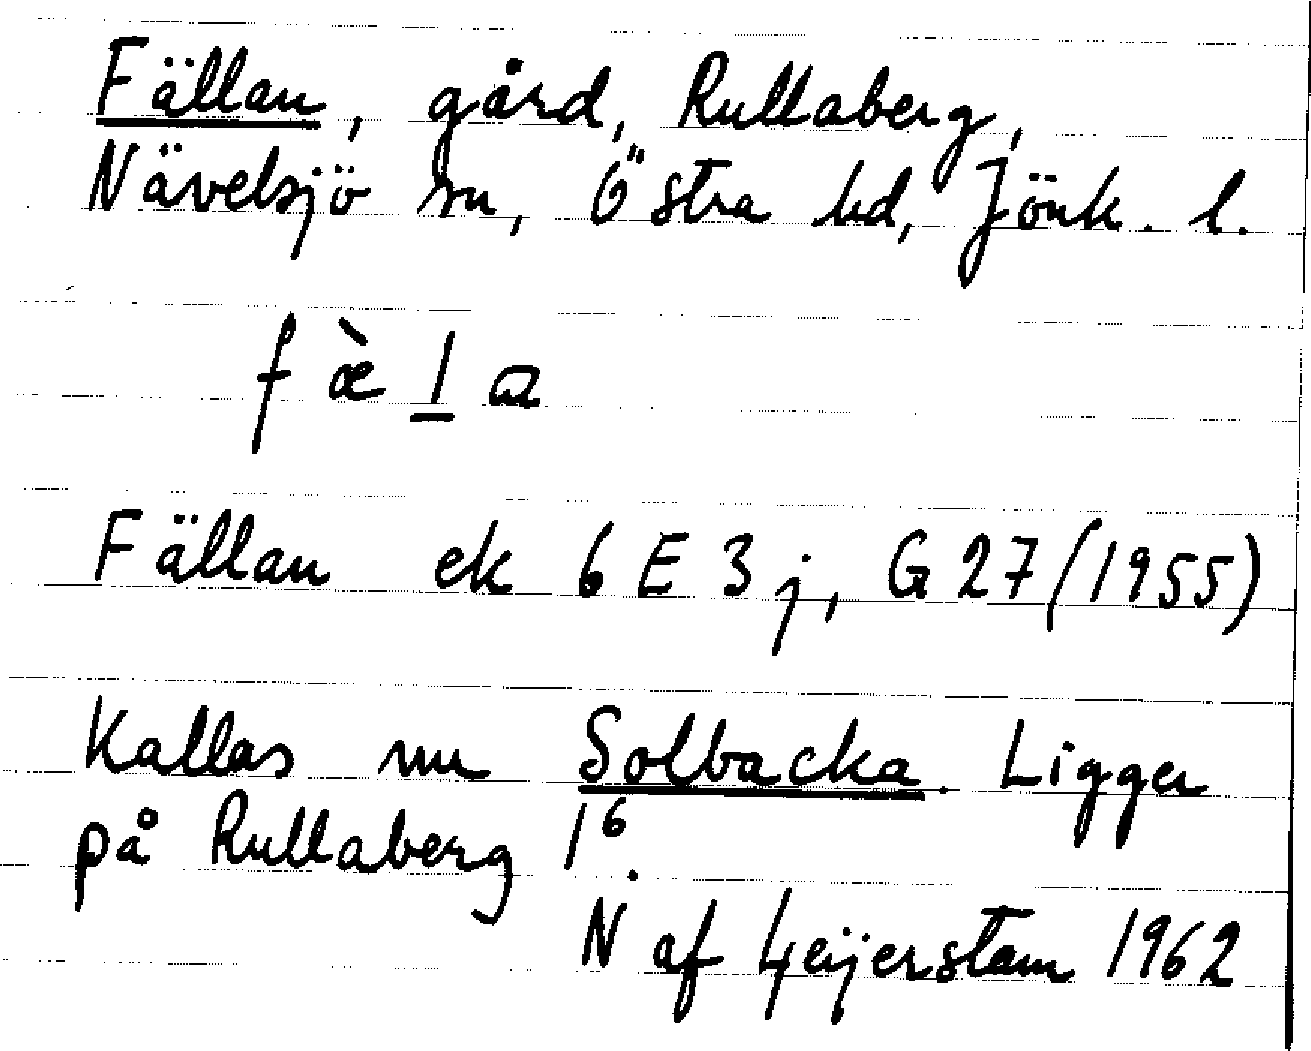 Fällan, gård, Rullaberg,
Nävelsjö sn, Östra hd, Jönk. l.
f æ̀ l̲ a
Fällan ek 6 E 3 j, G 27 (1955)
Kallas nu Solbacka. Ligger
på Rullaberg 1⁶.
N af Geijerstam 1962